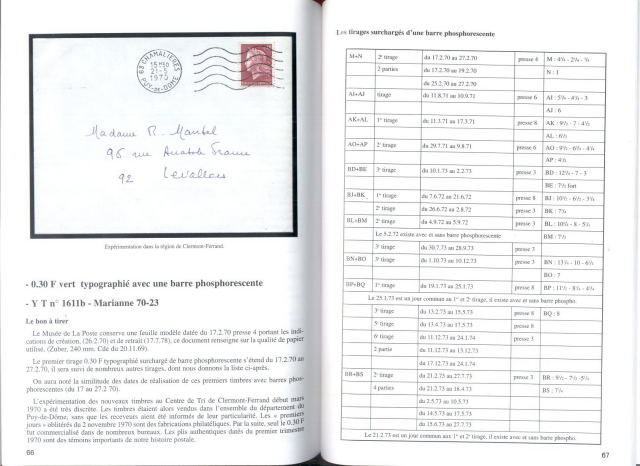 63 CHAMALIERES
15H30
21-5
1970
PUY-DE-DOME
Madame R.
96 rue Anatole France
92 Levallois
Expérimentation dans la région de Clermont-Ferrand.
- 0.30 F vert typographié avec une barre phosphorescente
- Y T n° 1611b - Marianne 70-23
Le bon à tirer
Le Musée de La Poste conserve une feuille modèle datée du 17.2.70 presse 4 portant les indi-
cations de création. (26.2.70) et de retrait (17.7.78), ce document renseigne sur la qualité de papier
utilisé. (Zuber, 240 mm. Cde du 20.11.69).
Le premier tirage 0.30 F typographié surchargé de barre phosphorescente s'étend du 17.2.70 au
27.2.70, il sera suivi de nombreux autres tirages, dont nous donnons la liste ci-après.
On aura noté la similitude des dates de réalisation de ces premiers timbres avec barres phos-
phorescentes (du 17 au 27.2.70).
L'expérimentation des nouveaux timbres au Centre de Tri de Clermont-Ferrand début mars
1970 a été très discrète. Les timbres étaient alors vendus dans l'ensemble du département du
Puy-de-Dôme, sans que les receveurs aient été informés de leur particularité. Les « premiers
jours » oblitérés du 2 novembre 1970 sont des fabrications philatéliques. Par la suite, seul le 0.30 F
fut commercialisé dans de nombreux bureaux. Les plis authentiques datés du premier trimestre
1970 sont des témoins importants de notre histoire postale.
66
Les tirages surchargés d'une barre phosphorescente
M+N 2e tirage du 17.2.70 au 27.2.70 presse 4 M : 4¾ - 2¼ - ¾
2 parties du 17.2.70 au 19.2.70 N : 1
du 25.2.70 au 27.2.70
AI+AJ tirage du 11.8.71 au 10.9.71 presse 6 AI : 5¾ - 4¾ - 3
AJ : 6
AK+AL 1er tirage du 11.3.71 au 17.3.71 presse 8 AK : 9½ - 7 - 4½
AL : 6½
AO+AP 2e tirage du 29.7.71 au 9.8.71 presse 6 AO : 9½ - 6¾ - 4¾
AP : 4½
BD+BE 3e tirage du 10.1.73 au 2.2.73 presse 3 BD : 12¼ - 7 - 3
BE : 7½ fort
BJ+BK 1er tirage du 7.6.72 au 21.6.72 presse 8 BJ : 10½ - 6½ - 3¾
2e tirage du 26.6.72 au 2.8.72 presse 3 BK : 7¾
BL+BM 2e tirage du 4.9.72 au 5.9.72 presse 3 BL : 10¾ - 8 - 5½
Le 5.2.72 existe avec et sans barre phosphorescente BM : 7½
3e tirage du 30.7.73 au 28.9.73 presse 3
BN+BO 3e tirage du 1.10.73 au 10.12.73 presse 3 BN : 13¼ - 10 - 6½
BO : 7
BP+BQ 1er tirage du 19.1.73 au 25.1.73 presse 3 BP : 11½ - 8¼ - 4¾
Le 25.1.73 est un jour commun au 1er et 2e tirage, il existe avec et sans barre phospho.
3e tirage du 13.2.73 au 15.5.73 presse 8 BQ : 8
5e tirage du 13.4.73 au 17.5.73 presse 8
6e tirage du 11.12.73 au 24.1.74 presse 3
2 partie du 11.12.73 au 13.12.73
du 17.12.73 au 24.1.74
BR+BS 2e tirage du 21.2.73 au 27.7.73 presse 3 BR : 9½ - 7½ -5¾
4 parties du 21.2.73 au 18.4.73 BS : 7¼
du 2.5.73 au 10.5.73
du 14.5.73 au 17.5.73
du 15.6.73 au 27.7.73
Le 21.2.73 est un jour commun aux 1er et 2e tirage, il existe avec et sans barre phospho.
67